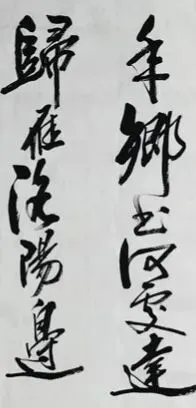 年鄉書何處達
歸雁洛陽邊